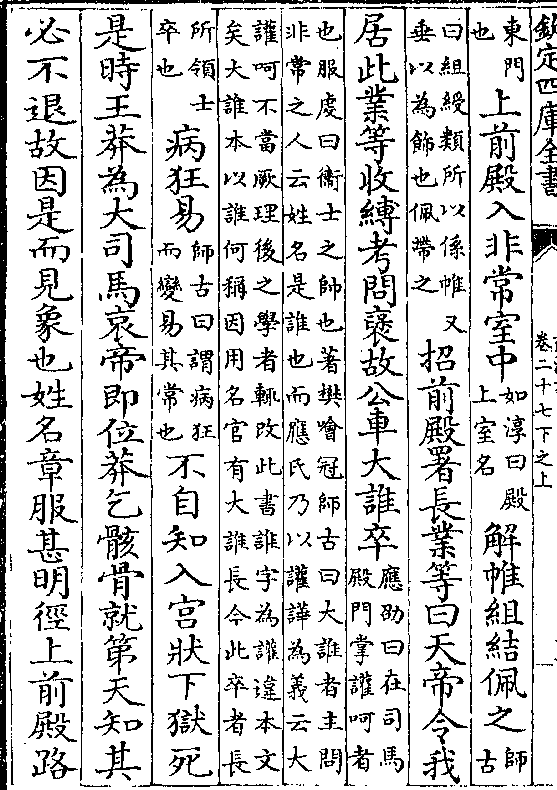 欽定四庫全書
卷二十七下之上
東門
也
上前殿入非常室中
如淳曰殿
上室名
解帷組結佩之
師
古
曰組綬類所以係帷又
垂以為飾也佩帶之
招前殿署長業等曰天帝令我
居此業等收縛考問襃故公車大誰卒
應劭曰在司馬
殿門掌讙呵者
也服虔曰衛士之帥也著樊噲冠師古曰大誰者主問
非常之人云姓名是誰也而應氏乃以讙譁為義云大
讙呵不當厥理後之學者輒改此書誰字為讙違本文
矣大誰本以誰何稱因用名官有大誰長今此卒者長
所領士
卒也
病狂易
師古曰謂病狂
而變易其常也
不自知入宫狀下獄死
是時王莽為大司馬哀帝即位莽乞骸骨就第天知其
必不退故因是而見象也姓名章服甚明徑上前殿路